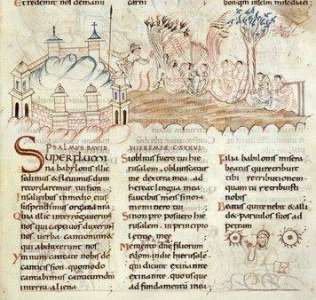 PSALMUS DAVID HIEREMIE CXXXVI
SUPERFLUMI
NA BABYLONIS ILLIC
SEDIMUS & FLEUIMUS DUM
RECORDAREMUR TUI SION
IN SALICIBUS IN MEDIO EIUS
SUSPENDIMUS ORGANA NRA
QUIA ILLIC INTERROGAUERUNT
NOS QUI CAPTIUOS DUXERUNT
NOS UERBA CANTICORUM &
QUI ABDUXERUNT NOS
YMNUM CANTATE NOBIS DE
CANTICIS SION QUOMODO
CANTABIMUS CANTICUM DNI
IN TERRA ALIENA
SI OBLITUS FUERO TUI HIE
RUSALEM, OBLIUISCATUR
ME DEXTERA MEA ADHE
REAT LINGUA MEA
FAUCIBUS MEIS SI NON
MEMINERO TUI
SI NON PROPOSUERO HIE
RUSALEM, IN PRINCIPIO
MEAE
MEMENTO DNE FILIORUM
EDOM IN DIE HIERUSALEM
QUI DICUNT EXINANITE
EXINANITE QUOUSQUE
AD FUNDAMENTUM IN EA
FILIA BABYLONIS MISERA
BEATUS QUI RETRIBUET
TIBI
QUAM TU RETRIBUISTI
NOBIS
BEATUS QUI TENEBIT & ALLI
DET PARUULOS SUOS AD
PETRAM